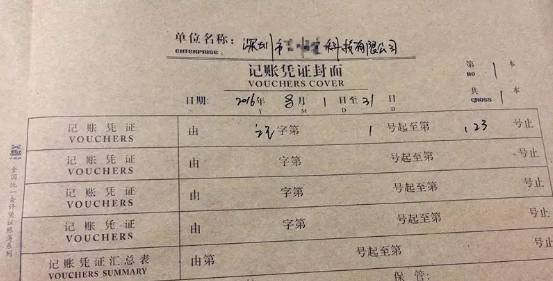 单位名称: 深圳市 科技有限公司
ENTERPRISE
记账凭证封面
VOUCHERS COVER
第 1 本
NO
共 1 本
GROSS
日期: 2016年 8月 1日至31日
Y M D D
记账凭证 由 记 字第 1 号起至第 123 号止
VOUCHERS
记账凭证 由 字第 号起至第 号止
VOUCHERS
记账凭证 由 字第 号起至第 号止
VOUCHERS
记账凭证 由 字第 号起至第 号止
VOUCHERS
记账凭证汇总表 由第 号起至第 号止
VOUCHERS SUMMARY
保 管:
全国统一会计凭证账簿系列